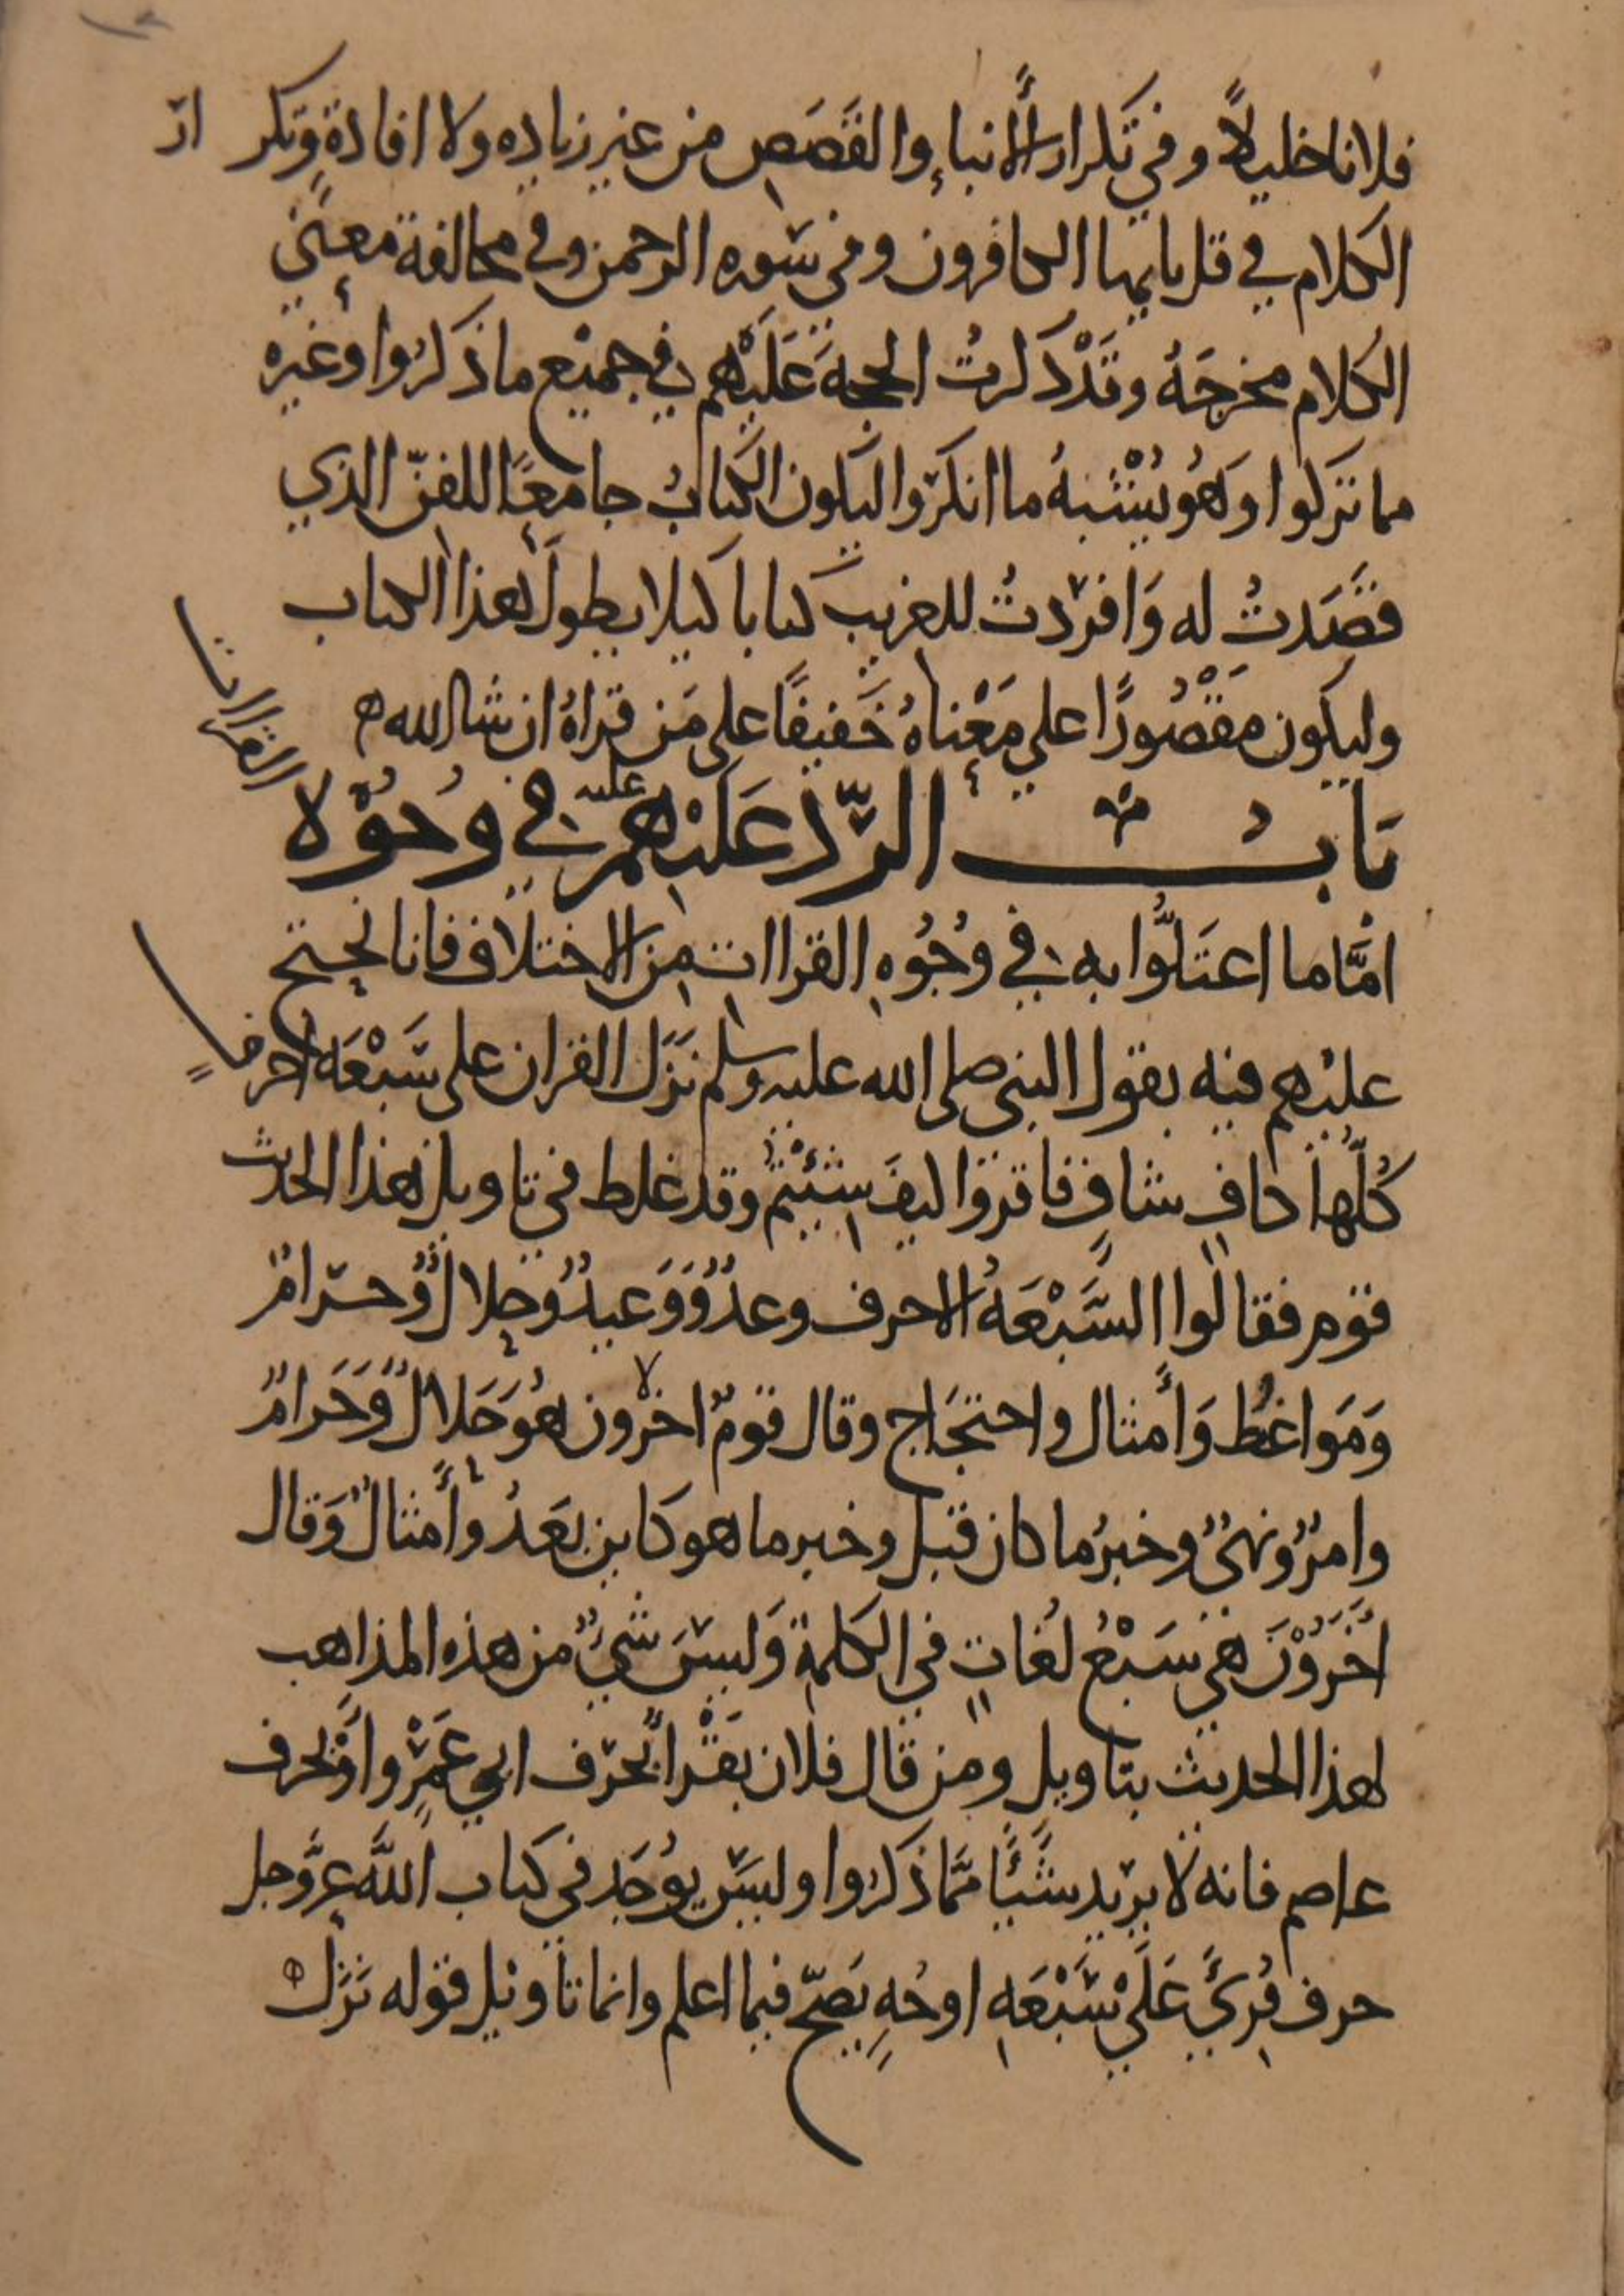 فلانا خليلاً وفي تكرار الأنباءِ والقَصَصِ من غير زياده ولا افادةٍ وتكرار
الكلام في قل يايها الكافرون وفي سوره الرحمن وفي مخالفة معنى
الكلام مخرجَهُ وقَدْ ذَكرتُ الحجةَ عَلَيْهم في جميْع ما ذكرُوا وغيره
مما تركوا وَهُو يُشْبهُ ما انكرُوا ليكون الكتابُ جامعًا للفنّ الذي
قصَدتُ له وَافرَدتُ للغريب كتابا كيلا يطولَ هذا الكتاب
وليكون مَقْصُورًا على مَعْناهُ خَفيفًا على مَن قراهُ ان شا الله
بَابُ الردّ عَلَيْهم عليه في وُجُوْه القراات
امَّا ما اعتَلُّوا به في وُجُوْهِ القراات مِن الاختلاف فانا نحتج
عليْهم فيه بقول النبي صلى الله عليه وسلم نَزَل القران على سَبْعَه احرفٍ
كُلّها كافٍ شافٍ فاقروا كيفَ شِئْتُمْ وقد غلط في تاويل هذا الحديث
قوم فقالُوا السَّبْعَهُ الاحرف وعدٌ وَوَعيدٌ وحلالٌ وَحرامٌ
وَمَواعُظ وَأمثال واحتجَاج وقال قومٌ اخرون هُو حَلالٌ وَحَرامٌ
وامرٌ ونهىٌ وخبرُ ما كان قبل وخبر ما هو كاين بَعَدُ وأمثالٌ وَقال
اخَرُوْنَ هي سَبْعُ لُغاتٍ في الكلمة وَليسَ شيٌ من هذه المذاهب
لهذا الحديث بتاويل ومن قال فلان يَقْرأ بحَرف ابي عَمْرٍو اوْ بحرف
عاصم فانه لا يريد شَيْئًا ممَّا ذكرُوا وليسَ يُوْجَد في كتاب اللَّه عزَّ وجل
حرف قُرِئَ عَلَى سَبْعَهِ اوجُهٍ يَصحّ فيما اعلم وانما تاويل قوله نَزَل